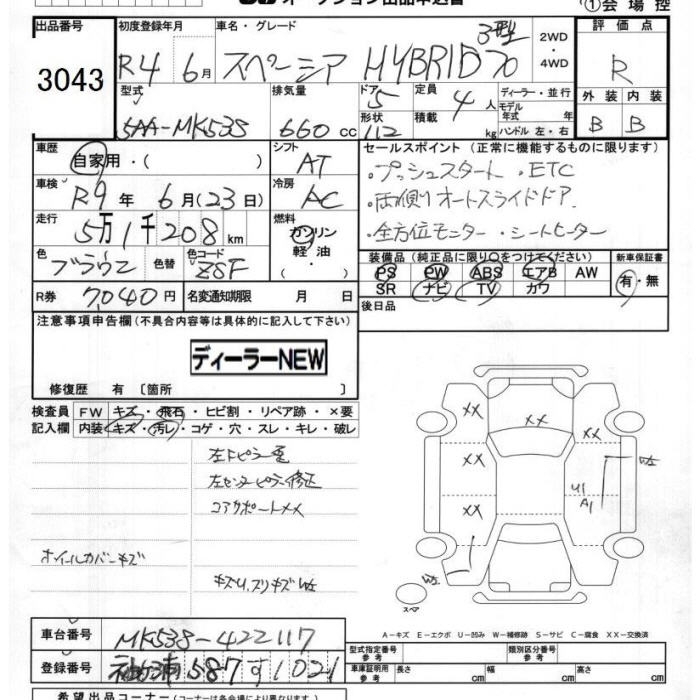 オークション出品申込書
①会場控
出品番号 初度登録年月 車名・グレード 評価点
3043 R4 6月 スペーシア HYBRID 3型 2WD・4WD R
型式 排気量 ドア 定員 ディーラー・並行 外装 内装
5AA-MK53S 660cc 5 4人 モデル年式 年式
形状 積載 ハンドル 左・右 B B
112 kg
車歴 シフト セールスポイント(正常に機能するものに限ります)
自家用・( ) AT ・プッシュスタート ・ETC
車検 冷房 ・両側オートスライドドア
R9年 6月(23日) AC ・全方位モニター ・シートヒーター
走行 燃料
5万1千208km ガソリン
軽油・( )
色 色替 色コード 装備品(純正品に限り○をつけてください) 新車保証書
ブラウン Z8F PS PW ABS エアB AW 有・無
SR ナビ TV カワ
R券 7,040円 名変通知期限 月 日 後日品
注意事項申告欄(不具合内容等は具体的に記入して下さい)
ディーラーNEW
修復歴 有 〔箇所 〕
検査員 FW キズ・飛石・ヒビ割・リペア跡・×要
記入欄 内装 キズ・汚レ・コゲ・穴・スレ・キレ・破レ
左Fピラー歪
左センターピラー修正
コアサポートXX
ホイールカバーキズ
キズU、スリキズW2
XX
XX
XX
W2
U1
A1
XX
W2
スペア
A-キズ E-エクボ U-凹み W-補修跡 S-サビ C-腐食 XX-交換済
車台番号 MK53S-422117 型式指定番号 類別区分番号
登録番号 袖ヶ浦 587 す 1021 車庫証明用参考 長さ cm 幅 cm 高さ cm
希望出品コーナー(コーナーは各会場により異なります)